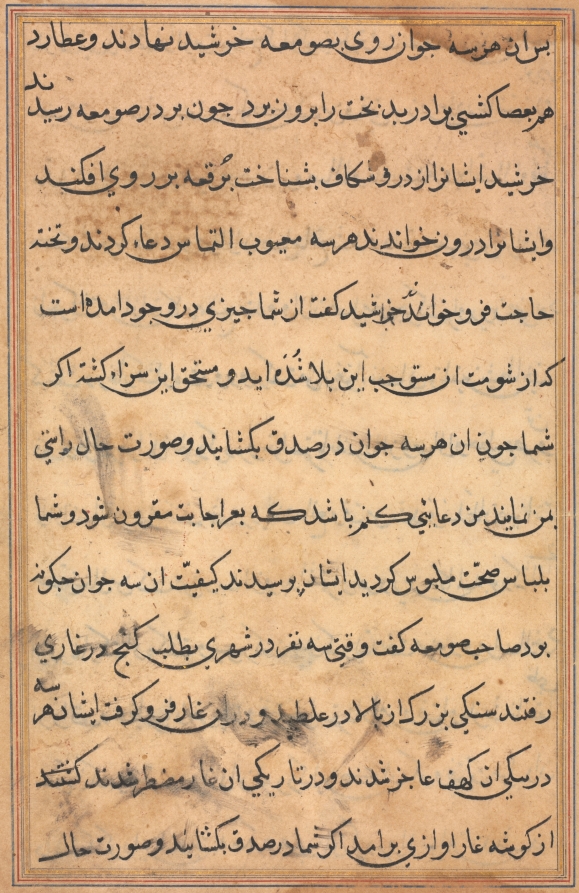 پس ان هرسه جوان روی بصومعه خرشید نهادند و عطارد
هم بعصا کشیی برادر بد بخت را برون برد جون بر در صومعه رسیدند
خرشید ایشانرا از در و شکاف بشناخت بُرقعه بر روی افکند
وایشانرا درون خواندند هرسه معیوب التماس دعاء کردند و تخته
حاجت فرو خواندند خرشید کفت از شما جیزی در وجود امده است
که از شومت ان مستوجب این بلا شُدَه اید و مستحق این سزاء کشته اکر
شما جون ان هرسه جوان در صدق بکشایند و صورت حال راستی
بمن نمایند من دعائی کنم باشد که بعز اجابت مقرون شود و شما
بلباس صحّت ملبوس کردید ایشان پرسیدند کیفیّت ان سه جوان جکونه
بود صاحب صومعه کفت وقتی سه نفر در شهری بطلب کنج در غاری
رفتند سنکی بزرک از بالا در غلطید و در ان غار فرو کرفت ایشان هر سه
در ان کهف عاجز شدند و در تاریکی ان غار مضطر شدند
از کوشه غار اوازی برامد اکر شما در صدق بکشائید و صورت حال